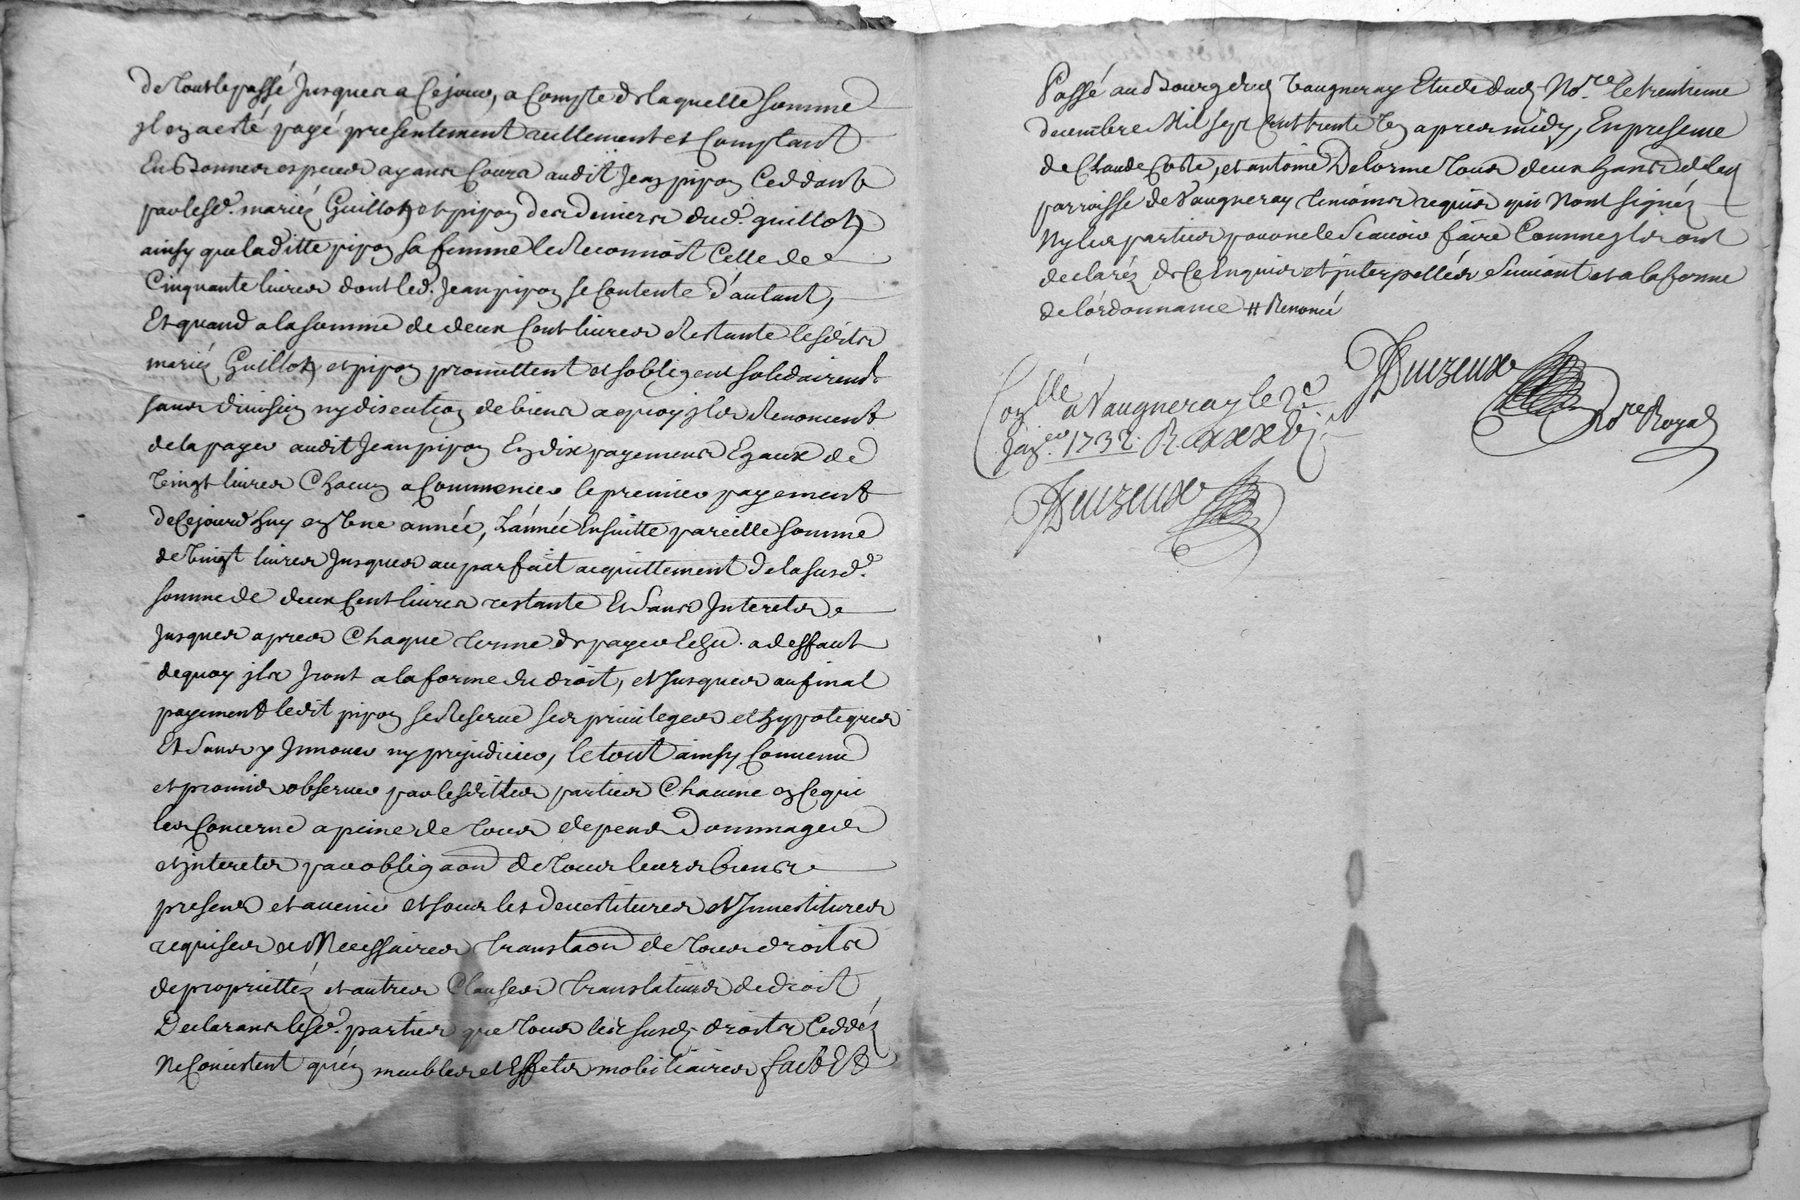 de tout le passé jusques a ce jour, a compte de laquelle somme
il en a esté payé presentement reellement et comptant
en bonnes especes ayans cours audit Jean pipon ceddant
par lesd. mariés Guillot et pipon des deniers dud. guillot
ainsy que laditte pipon sa femme le reconnoit celle de
cinquante livres dont led. Jean pipon se contente d'autant,
Et quand a la somme de deux cent livres restante lesdits
mariés Guillot et pipon promettent et sobligent solidairemt
sans division ny discution de biens a quoy ils renoncent
de la payer audit Jean pipon en dix payements Egaux de
vingt livres chacun a commencer le premier payement
de ce jourd'huy en une année, L'année ensuitte pareille somme
de vingt livres jusques au parfait acquittement de la susd.
somme de deux cent livres restante Et sans Interets
jusques apres chaque terme de payer Echu. a deffaut
de quoy ils jront a la forme du droit, et jusques au final
payement ledit pipon se reserve ses privileges et hypoteques
Et sans y Jnnover ny prejudicier, le tout ainsy convenu
et promis observer par lesdittes parties chacune en ce qui
les concerne a peine de tous depens dommages
et interets par obligaon de tous leurs biens
presens et avenir et sous les devestitures et Jnvestitures
requises et Necessaires translaon de tous droits
de proprietéz et autres clauses translatives de droit
Declarans lesd. parties que tous les susd. droits ceddéz
ne consistent qu'en meubles et Effets mobiliaires fait Et
Passé au Bourg dud Vaugneray Etude dud Nore. le trentieme
decembre Mil sept cent trente apres midy, En presence
de Claude Coste, et antoine Delorme tous deux
parroisse de Vaugneray temoins requis qui n'ont signéz
ny les parties pour ne le scavoir faire comme ils ont
declaréz de ce Enquis et interpellés suivant et a la forme
de l'ordonnance # Renoncé
Nore Royal
Conllé a Vaugneray le 2e
Janer. 1738. R